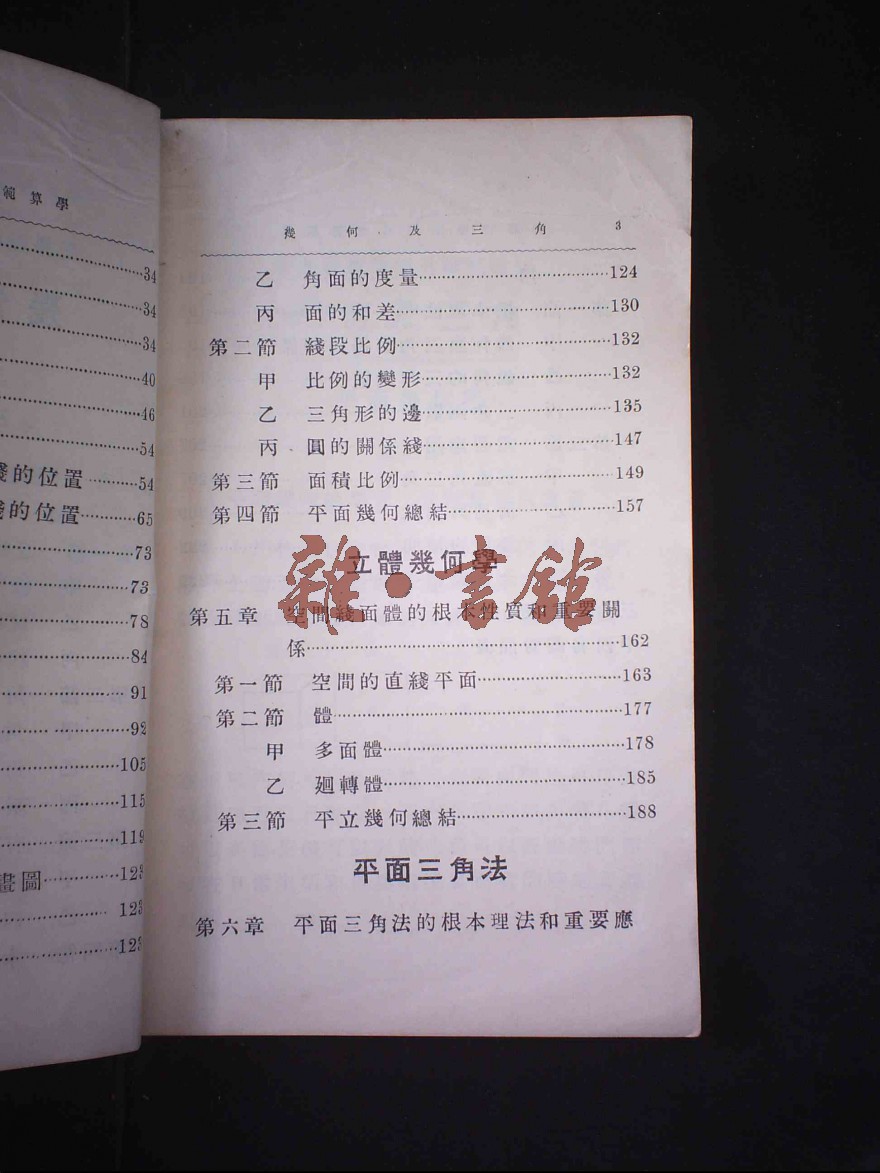 範算學
34
34
34
40
46
54
綫的位置…………54
綫的位置…………65
73
73
78
84
91
92
105
115
119
畫圖…………123
123
123
幾何及三角 3
乙 角面的度量…………124
丙 面的和差…………130
第二節 綫段比例…………132
甲 比例的變形…………132
乙 三角形的邊…………135
丙 圓的關係綫…………147
第三節 面積比例…………149
第四節 平面幾何總結…………157
立體幾何學
雜·書館
第五章 空間綫面體的根本性質和重要關
係…………162
第一節 空間的直綫平面…………163
第二節 體…………177
甲 多面體…………178
乙 廻轉體…………185
第三節 平立幾何總結…………188
平面三角法
第六章 平面三角法的根本理法和重要應